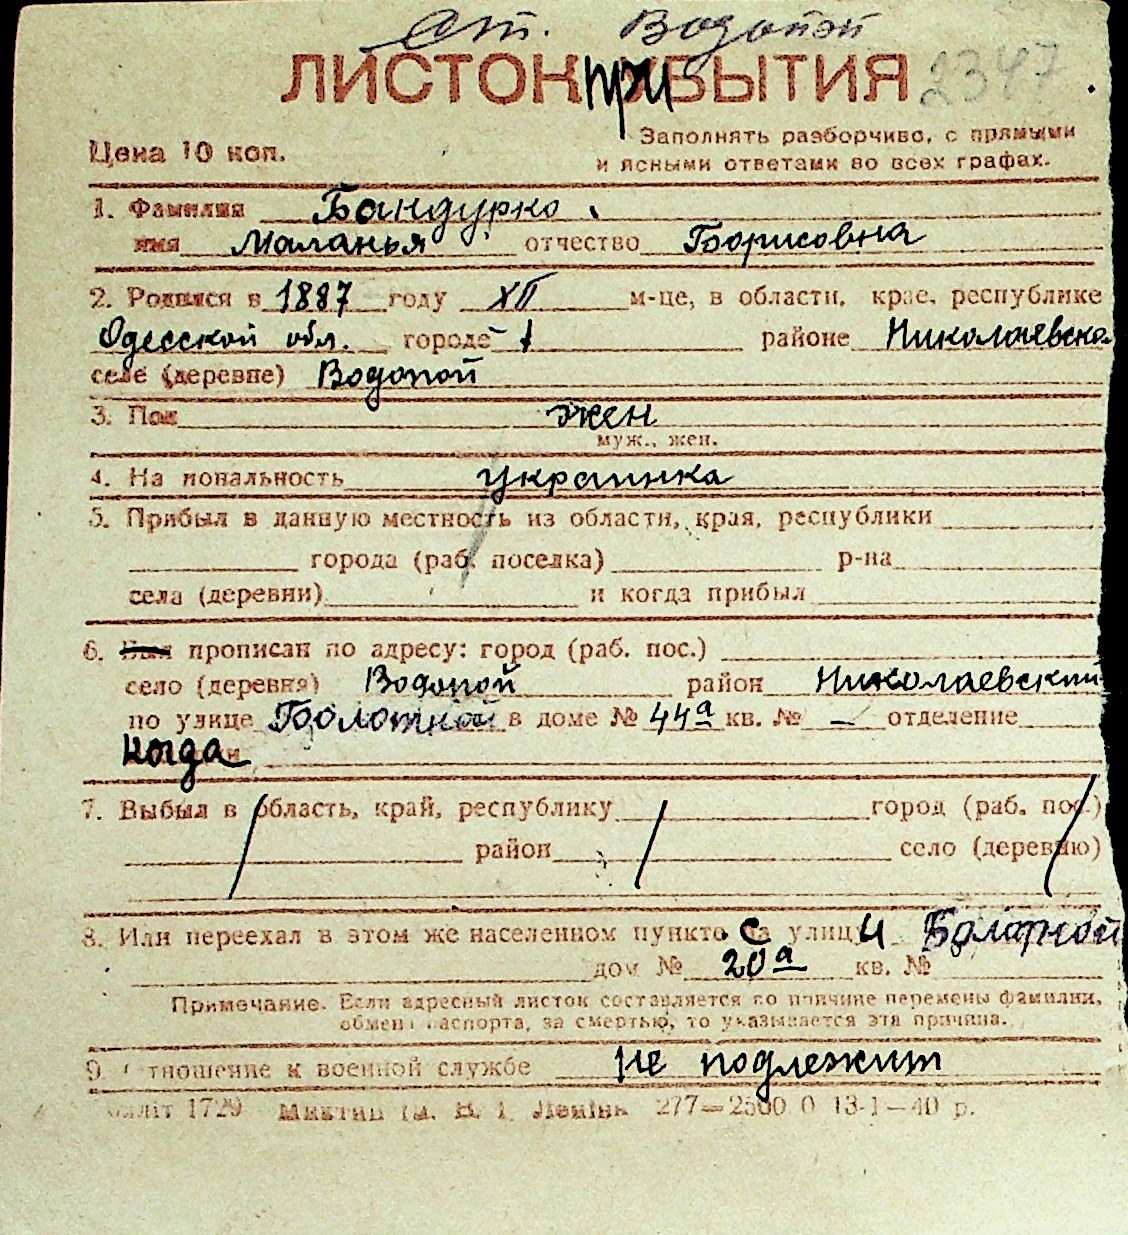 ст. Водопой
ЛИСТОК ПРИБЫТИЯ 2347
Цена 10 коп.
Заполнять разборчиво, с прямыми
и ясными ответами во всех графах.
1. Фамилия Бандурко
имя Маланья отчество Борисовна
2. Родился в 1887 году XII м-це, в области, крае, республике
Одесской обл. городе районе Николаевско
селе (деревне) Водопой
3. Пол жен
муж., жен.
4. Национальность украинка
5. Прибыл в данную местность из области, края, республики
города (раб. поселка) р-на
села (деревни) и когда прибыл
6. прописан по адресу: город (раб. пос.)
село (деревня) Водопой район Николаевский
по улице Болотной в доме № 44а кв. № — отделение
когда
7. Выбыл в область, край, республику город (раб. пос.)
район село (деревню)
8. Или переехал в этом же населенном пункте с улицы
дом № 20а кв. №
Примечание. Если адресный листок составляется по причине перемены фамилии,
обмена паспорта, за смертью, то указывается эта причина.
9. Отношение к военной службе не подлежит
1729 277—2500 0 13-1—40 р.